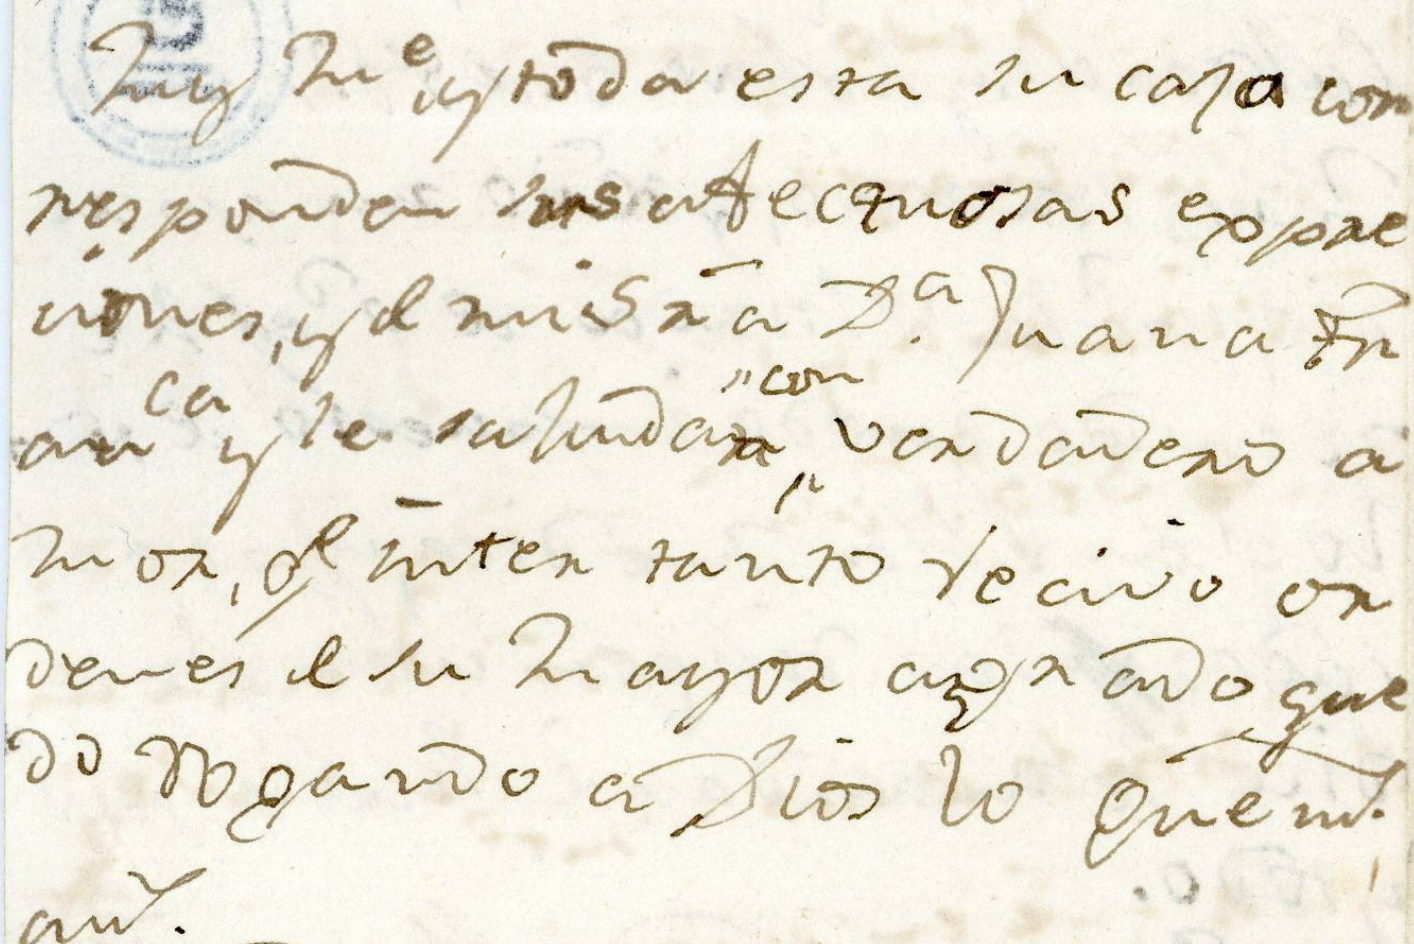 Muy Me y toda esta su casa con
rresponden sus afectuosas expre
ciones, y el mis Sra Da Juana Fr
anca y le saludan con verdadero a
mor, qe inter tanto recivo or
denes de su mayor agrado que
do rogando a Dios lo gue ms.
as.